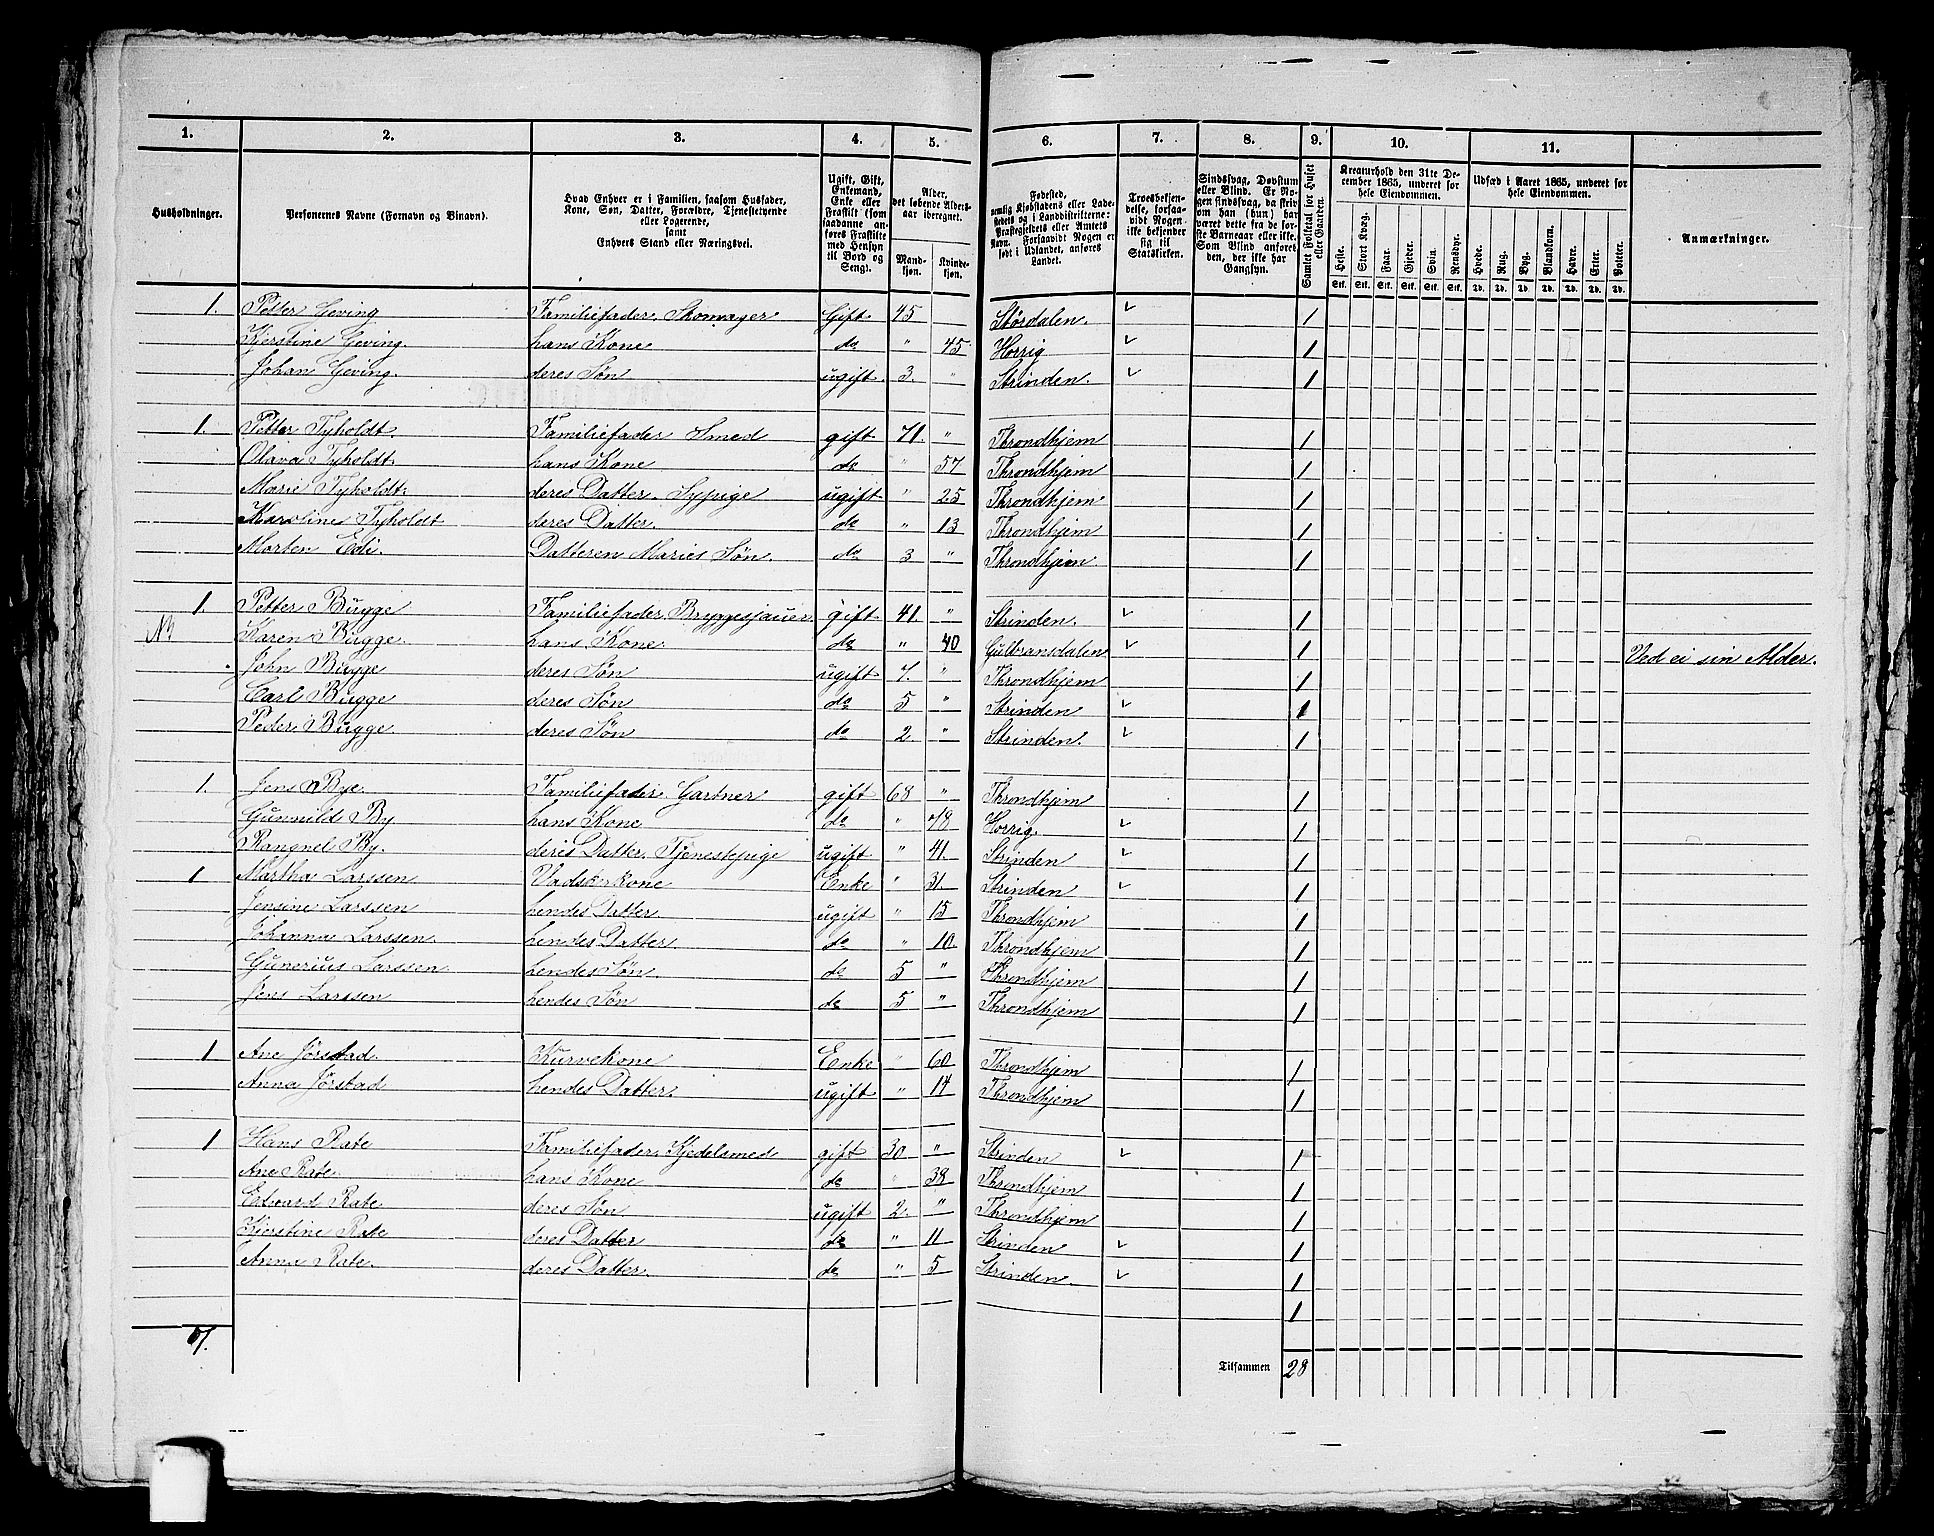 1. 2. 3. 4. 5. 6. 7. 8. 9. 10. 11.
Husholdninger.
Personernes Navne (Fornavn og Binavn).
Hvad Enhver er i Familien, saasom Husfader,
Kone, Søn, Datter, Forældre, Tjenestetyende
eller Logerende,
samt
Enhvers Stand eller Næringsvei.
Ugift, Gift,
Enkemand,
Enke eller
Fraskilt (som
saadanne an-
føres Fraskilte
med Hensyn
til Bord og
Seng).
Alder,
det løbende Alders-
aar iberegnet.
Mand-
kjøn.
Kvinde-
kjøn.
Fødested,
nemlig Kjøbstadens eller Lade-
stedets og i Landdistrikterne:
Præstegjeldets eller Amtets
Navn. Forsaavidt Nogen er
født i Udlandet, anføres
Landet.
Troesbekjen-
delse, forsaa-
vidt Nogen
ikke bekjender
sig til
Statskirken.
Sindssvag, Døvstum
eller Blind. Er No-
gen sindssvag, da skriv
om han (hun) har
været dette fra de før-
ste Barneaar eller ikke.
Som Blind anføres
den, der ikke har
Gangsyn.
Samlet Folketal for Huset
eller Gaarden.
Kreaturhold den 31te De-
cember 1865, underet for
hele Eiendommen.
Heste. Stort Kvæg. Faar. Gjeder. Svin. Rensdyr.
Stk. Stk. Stk. Stk. Stk. Stk.
Udsæd i Aaret 1865, underet for
hele Eiendommen.
Hvede. Rug. Byg. Blandkorn. Havre. Erter. Poteter.
Td. Td. Td. Td. Td. Td. Td.
Anmærkninger.
1. Petter Geving Familiefader, Skomager Gift 45 Stördalen. 1
Kjerstine Geving. hans Kone do " 45 Horrig 1
Johan Geving. deres Søn ugift. 3. " Strinden. 1
1. Petter Tyholdt. Familiefader Smed gift 71. " Throndhjem 1
Olava Tyholdt. hans Kone do " 57 Throndhjem 1
Marie Tyholdt. deres Datter. Sypige ugift " 25 Throndhjem 1
Karoline Tyholdt deres Datter. do " 13 Throndhjem 1
Morten Edi. Datteren Maries Søn. do 3 " Throndhjem 1
1. Petter Bugge Familiefader, Bryggesjauer gift 41. " Strinden. 1
Karen Bugge. hans Kone. do " 40 Gulbransdalen 1 Ved ei sin Alder.
John Bugge deres Søn ugift 7. " Throndhjem 1
Carl Bugge deres Søn do 5 " Strinden 1
Peder Bugge. deres Søn do 2 " Strinden. 1
1. Jens Bye. Familiefader Gartner gift 68 " Throndhjem 1
Gunnild By hans Kone do " 78 Horrig. 1
Rangnel By. deres Datter, Tjenestepige ugift " 41. Strinden 1
1 Martha Larssen Vadskerkone Enke " 31. Strinden 1
Jensine Larssen hendes Datter. ugift " 15 Throndhjem 1
Johanna Larssen. hendes Datter. do " 10. Throndhjem 1
Gunerius Larssen. hendes Søn. do 5 " Throndhjem 1
Jens Larssen hendes Søn do 5 " Throndhjem 1
1 Ane Jørstad. Kurvekone Enke " 60 Throndhjem 1
Anna Jørstad hendes Datter. ugift " 14 Throndhjem 1
1 Hans Rate Familiefader, Kjedelsmed gift 30 " Strinden 1
Ane Rate. hans Kone do " 38 Throndhjem 1
Edvard Rate deres Søn ugift 2. " Throndhjem 1
Kjerstine Rate deres Datter do " 11 Strinden 1
Anna Rate. deres Datter. do " 5 Strinden. 1
1
Tilsammen 28